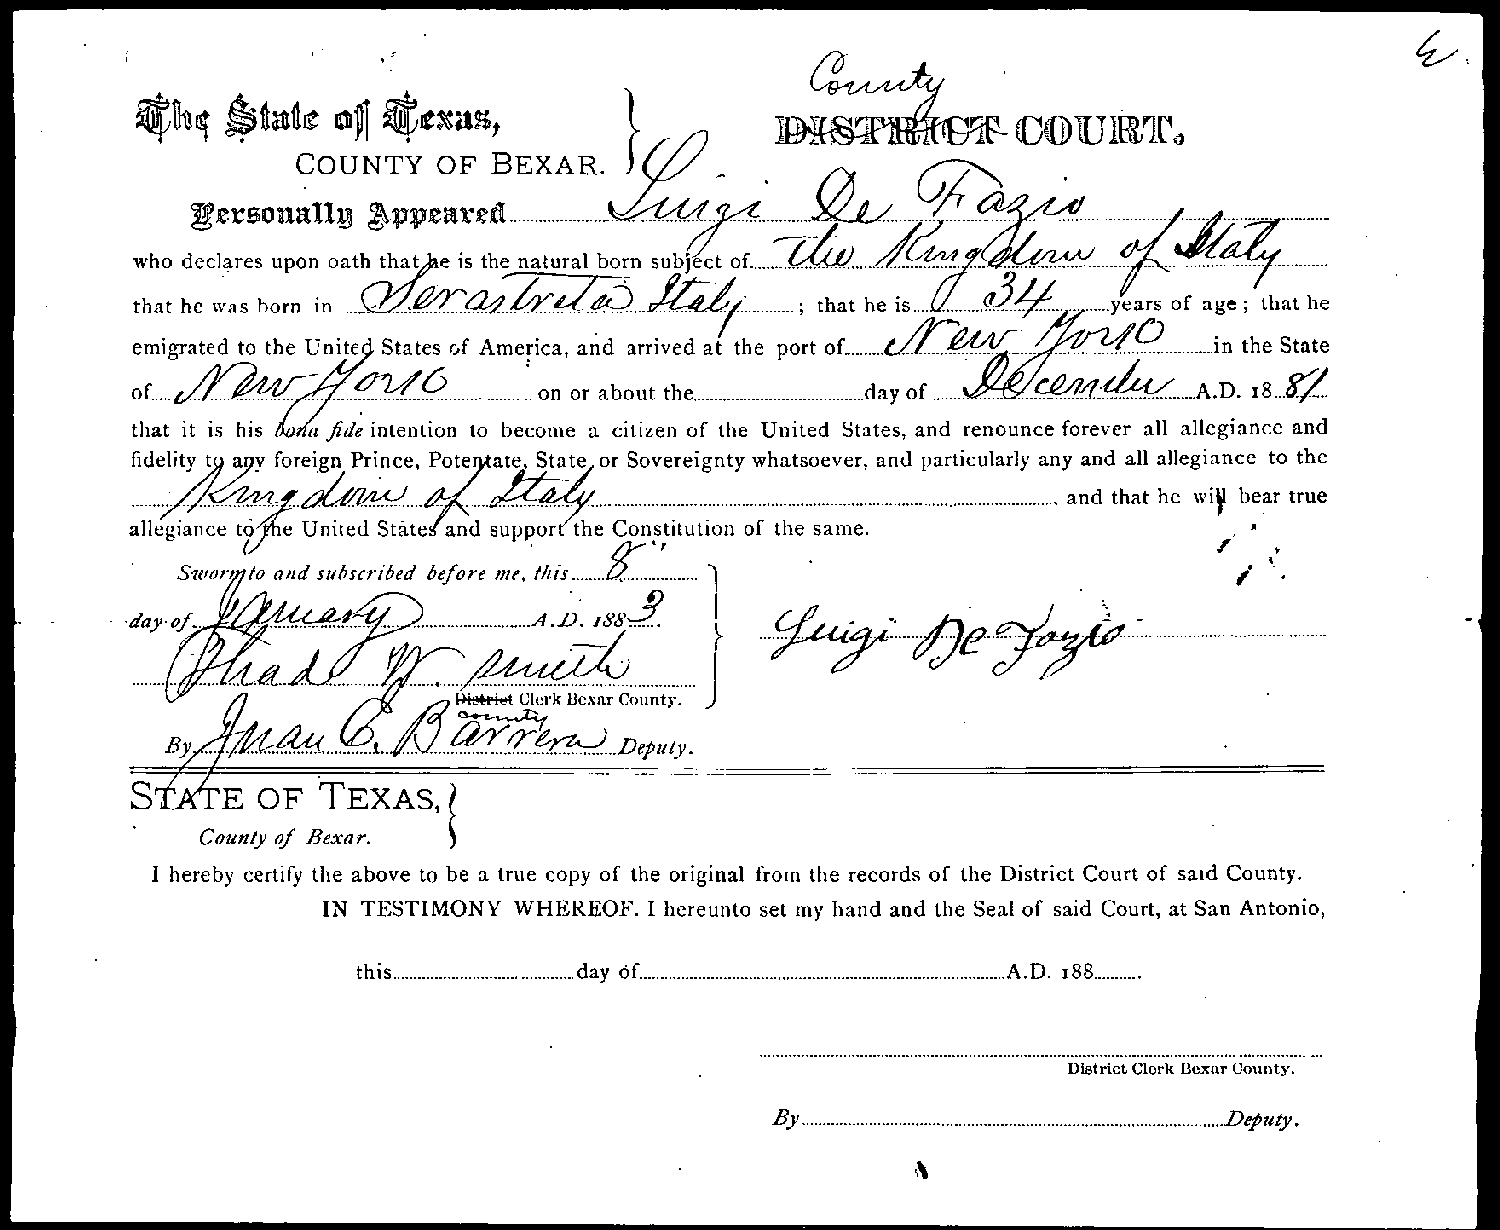 County
The State of Texas, } DISTRICT COURT.
COUNTY OF BEXAR.
Personally Appeared Luigi De Fazio
who declares upon oath that he is the natural born subject of the Kingdom of Italy
that he was born in Serastreta Italy ; that he is 34 years of age; that he
emigrated to the United States of America, and arrived at the port of New York in the State
of New York on or about the day of December A.D. 1881
that it is his bona fide intention to become a citizen of the United States, and renounce forever all allegiance and
fidelity to any foreign Prince, Potentate, State, or Sovereignty whatsoever, and particularly any and all allegiance to the
Kingdom of Italy and that he will bear true
allegiance to the United States and support the Constitution of the same.
Sworn to and subscribed before me, this 8"
day of January A.D. 1883.
Luigi De Fazio
Thad W. Smith
District Clerk Bexar County.
County
By Juan E. Barrera Deputy.
STATE OF TEXAS, }
County of Bexar.
I hereby certify the above to be a true copy of the original from the records of the District Court of said County.
IN TESTIMONY WHEREOF. I hereunto set my hand and the Seal of said Court, at San Antonio,
this day of A.D. 188
District Clerk Bexar County.
By Deputy.